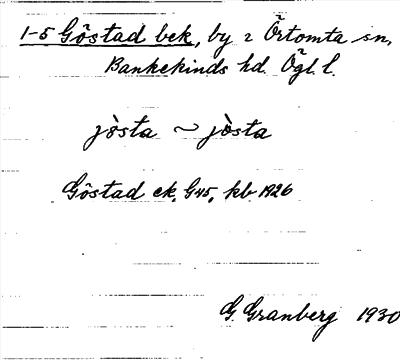 1-5 Göstad bek, by i Örtomta sn,
Bankekinds hd. Ögl. l.
jò̀sta ~ jò̀sta
Göstad ek. G45, kb 1926
G. Granberg 1930